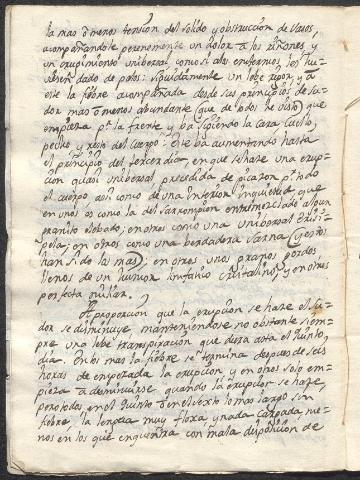 la mas ò menos tension del sólido y obstruccion de Vasos,
acompañandole perenemente un dolor a los riñones, y
un crugimiento universal como si a los enfermos les hu-
viesen dado de palos: siguidamente un lebe rigor, y a
este la fiebre acompañada desde sus principios de su-
dor mas ò menos abundante (que de todos he visto) que
empieza p.r la frente y ba siguiendo la cara, cuello,
pecho y resto del cuerpo: este ba aumentando hasta
el principio del tercer dia, en que se hace una erup-
cion quasi universal precedida de picazon p.r todo
el cuerpo asi como de una interior inquietud que
en unos es como la del Sarrampion entremezclado algun
granito elebado; en otros como una universal Erisi-
pela; en otros como una berdadera Sarna (y estos
han sido los mas); en otros unos granos gordos
llenos de un humor linfatico cristalino, y en otros
perfecta miliar.
A proporcion que la erupcion se hace el Su-
dor se disminuye, manteniendose no obstante siem-
pre una lebe transpiracion que dura asta el quinto
dia. En los mas la fiebre se termina despues de seis
horas de empezada la erupcion, y en otros solo em-
pieza a disminuirse quando la erupcion se hace,
pero todos en el quinto ò en el sexto lo mas largo sin
fiebre la lengua muy floxa y nada cargada, me-
nos en los que encuentra con mala disposicion de